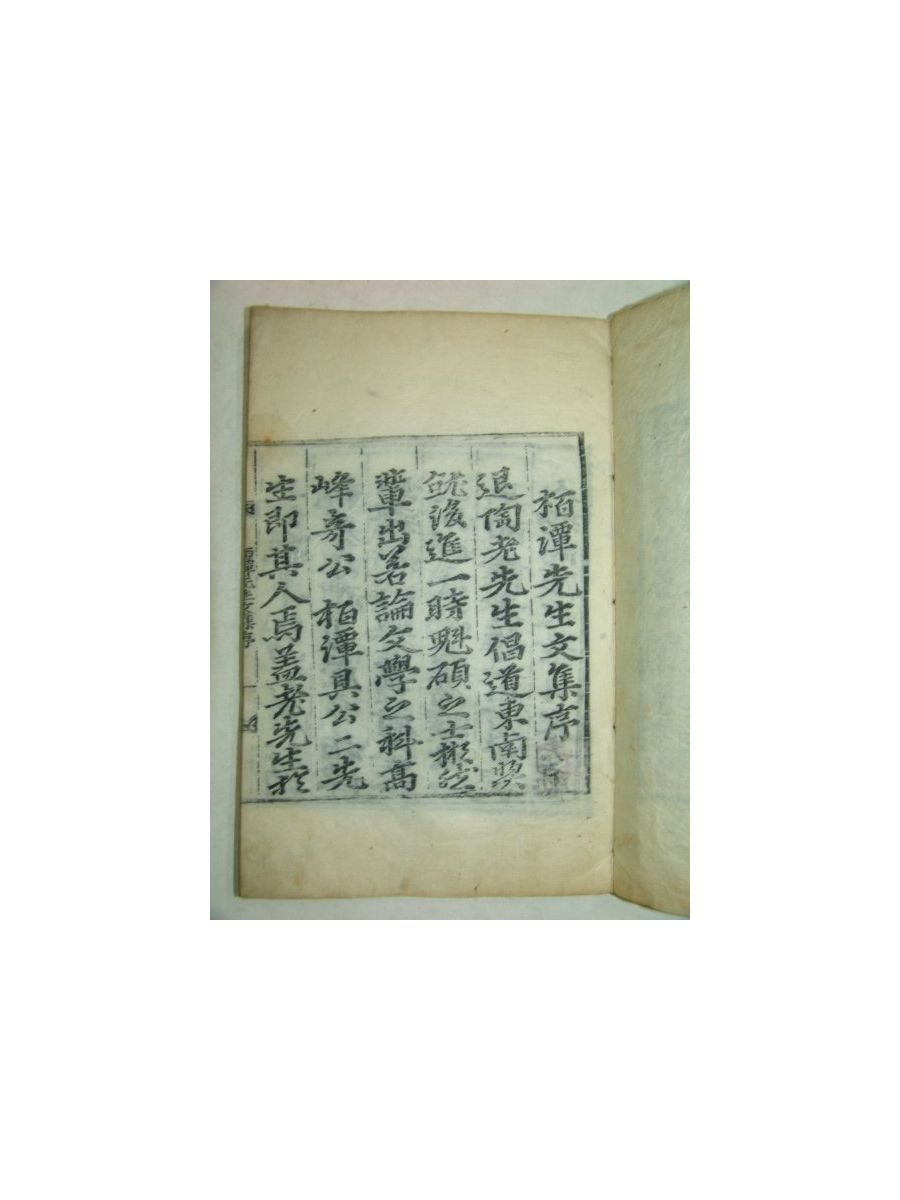 栢潭先生文集序
退陶老先生倡道東南興
就後進一時魁碩之士彬然
輩出若論文學之科高
峰奇公 栢潭具公二先
生即其人焉盖老先生於
栢潭先生文集序 一